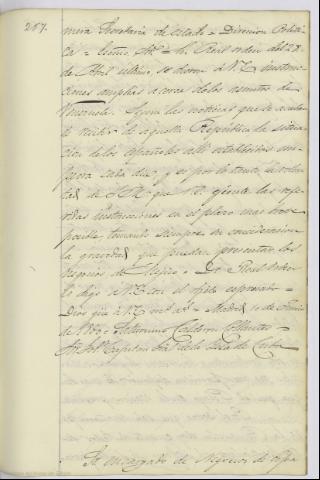 257.
mera Secretaria de Estado = Direccion Politi-
ca = Excmo. Sor. = En Real orden del 28
de Abril último, se dieron a V.E. instruc-
ciones amplias acerca de los asuntos de
Venezuela. Segun las noticias que se acaban
de recibir de aquella Republica la situa-
cion de los Españoles alli establecidos em-
peora cada dia y es por lo tanto la volun-
tad de S.M. que V.E. ejecute las refe-
ridas instrucciones en el plazo mas breve
posible, tomando siempre en consideracion
la gravedad que puedan presentar los
negocios de Mejico = De Real orden
lo digo a V.E. con el objeto espresado =
Dios que a V.E. ms. as. = Madrid 10 de
de 1860 = Saturnino Calderon Collantes =
Sor. Gobor. Capitan Gral. de la Isla de Cuba
El encargado de Negocios de Espa